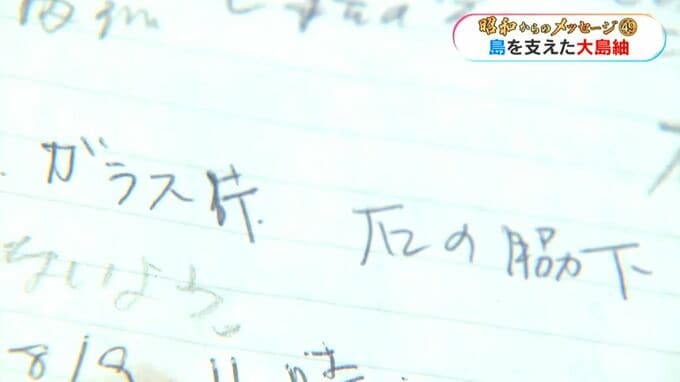 昭和からのメッセージ㊾
島を支えた大島紬
ガラス片 右の脇下
ないよう
8/9 11時